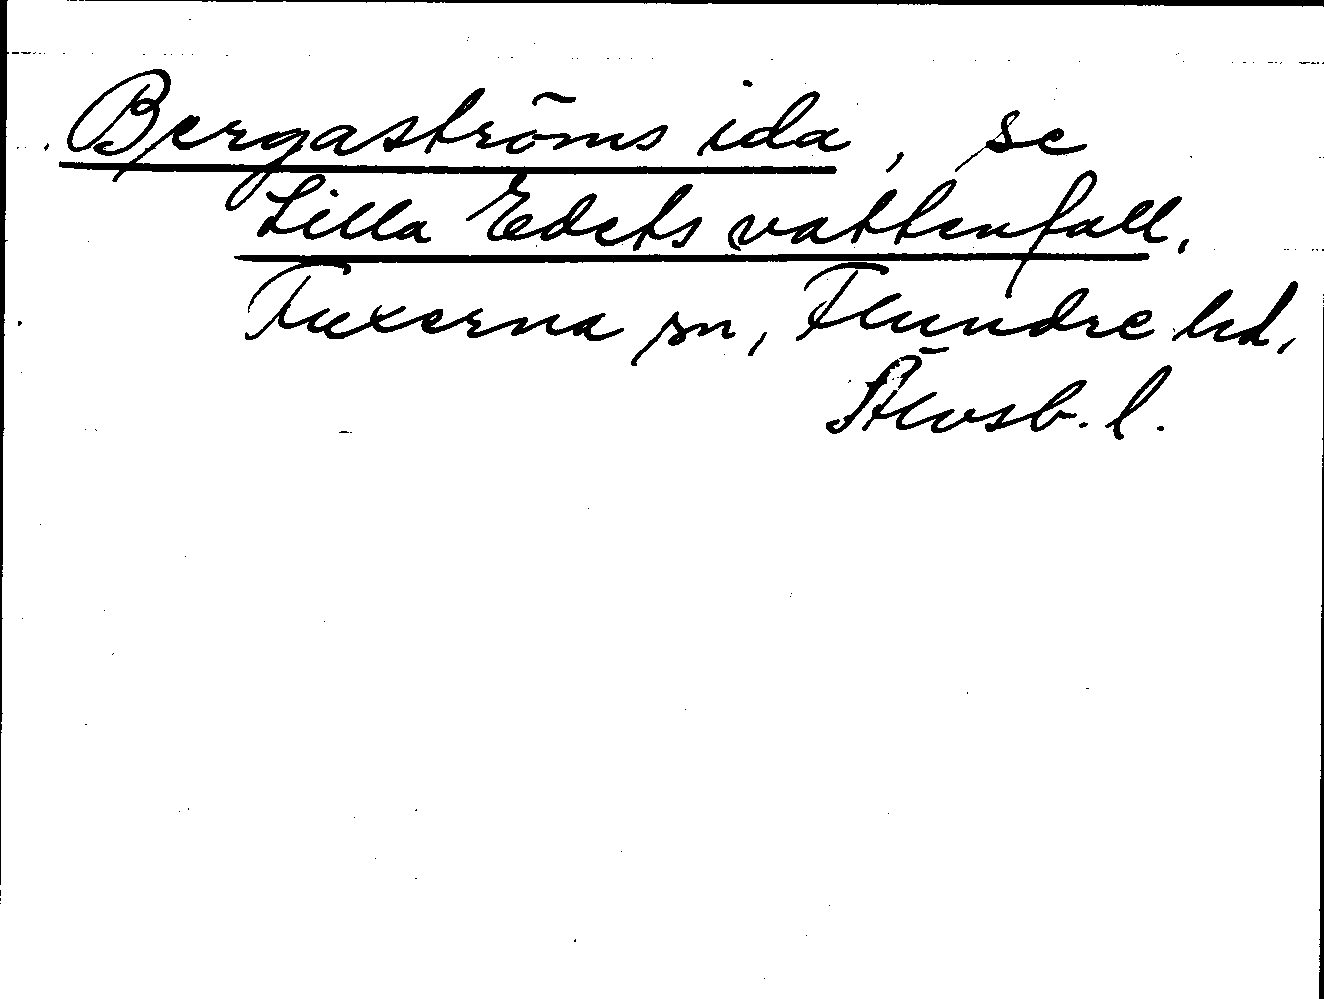 Bergaströms ida, se
Lilla Edets vattenfall,
Fuxerna sn, Flundre hd,
Älvsb. l.